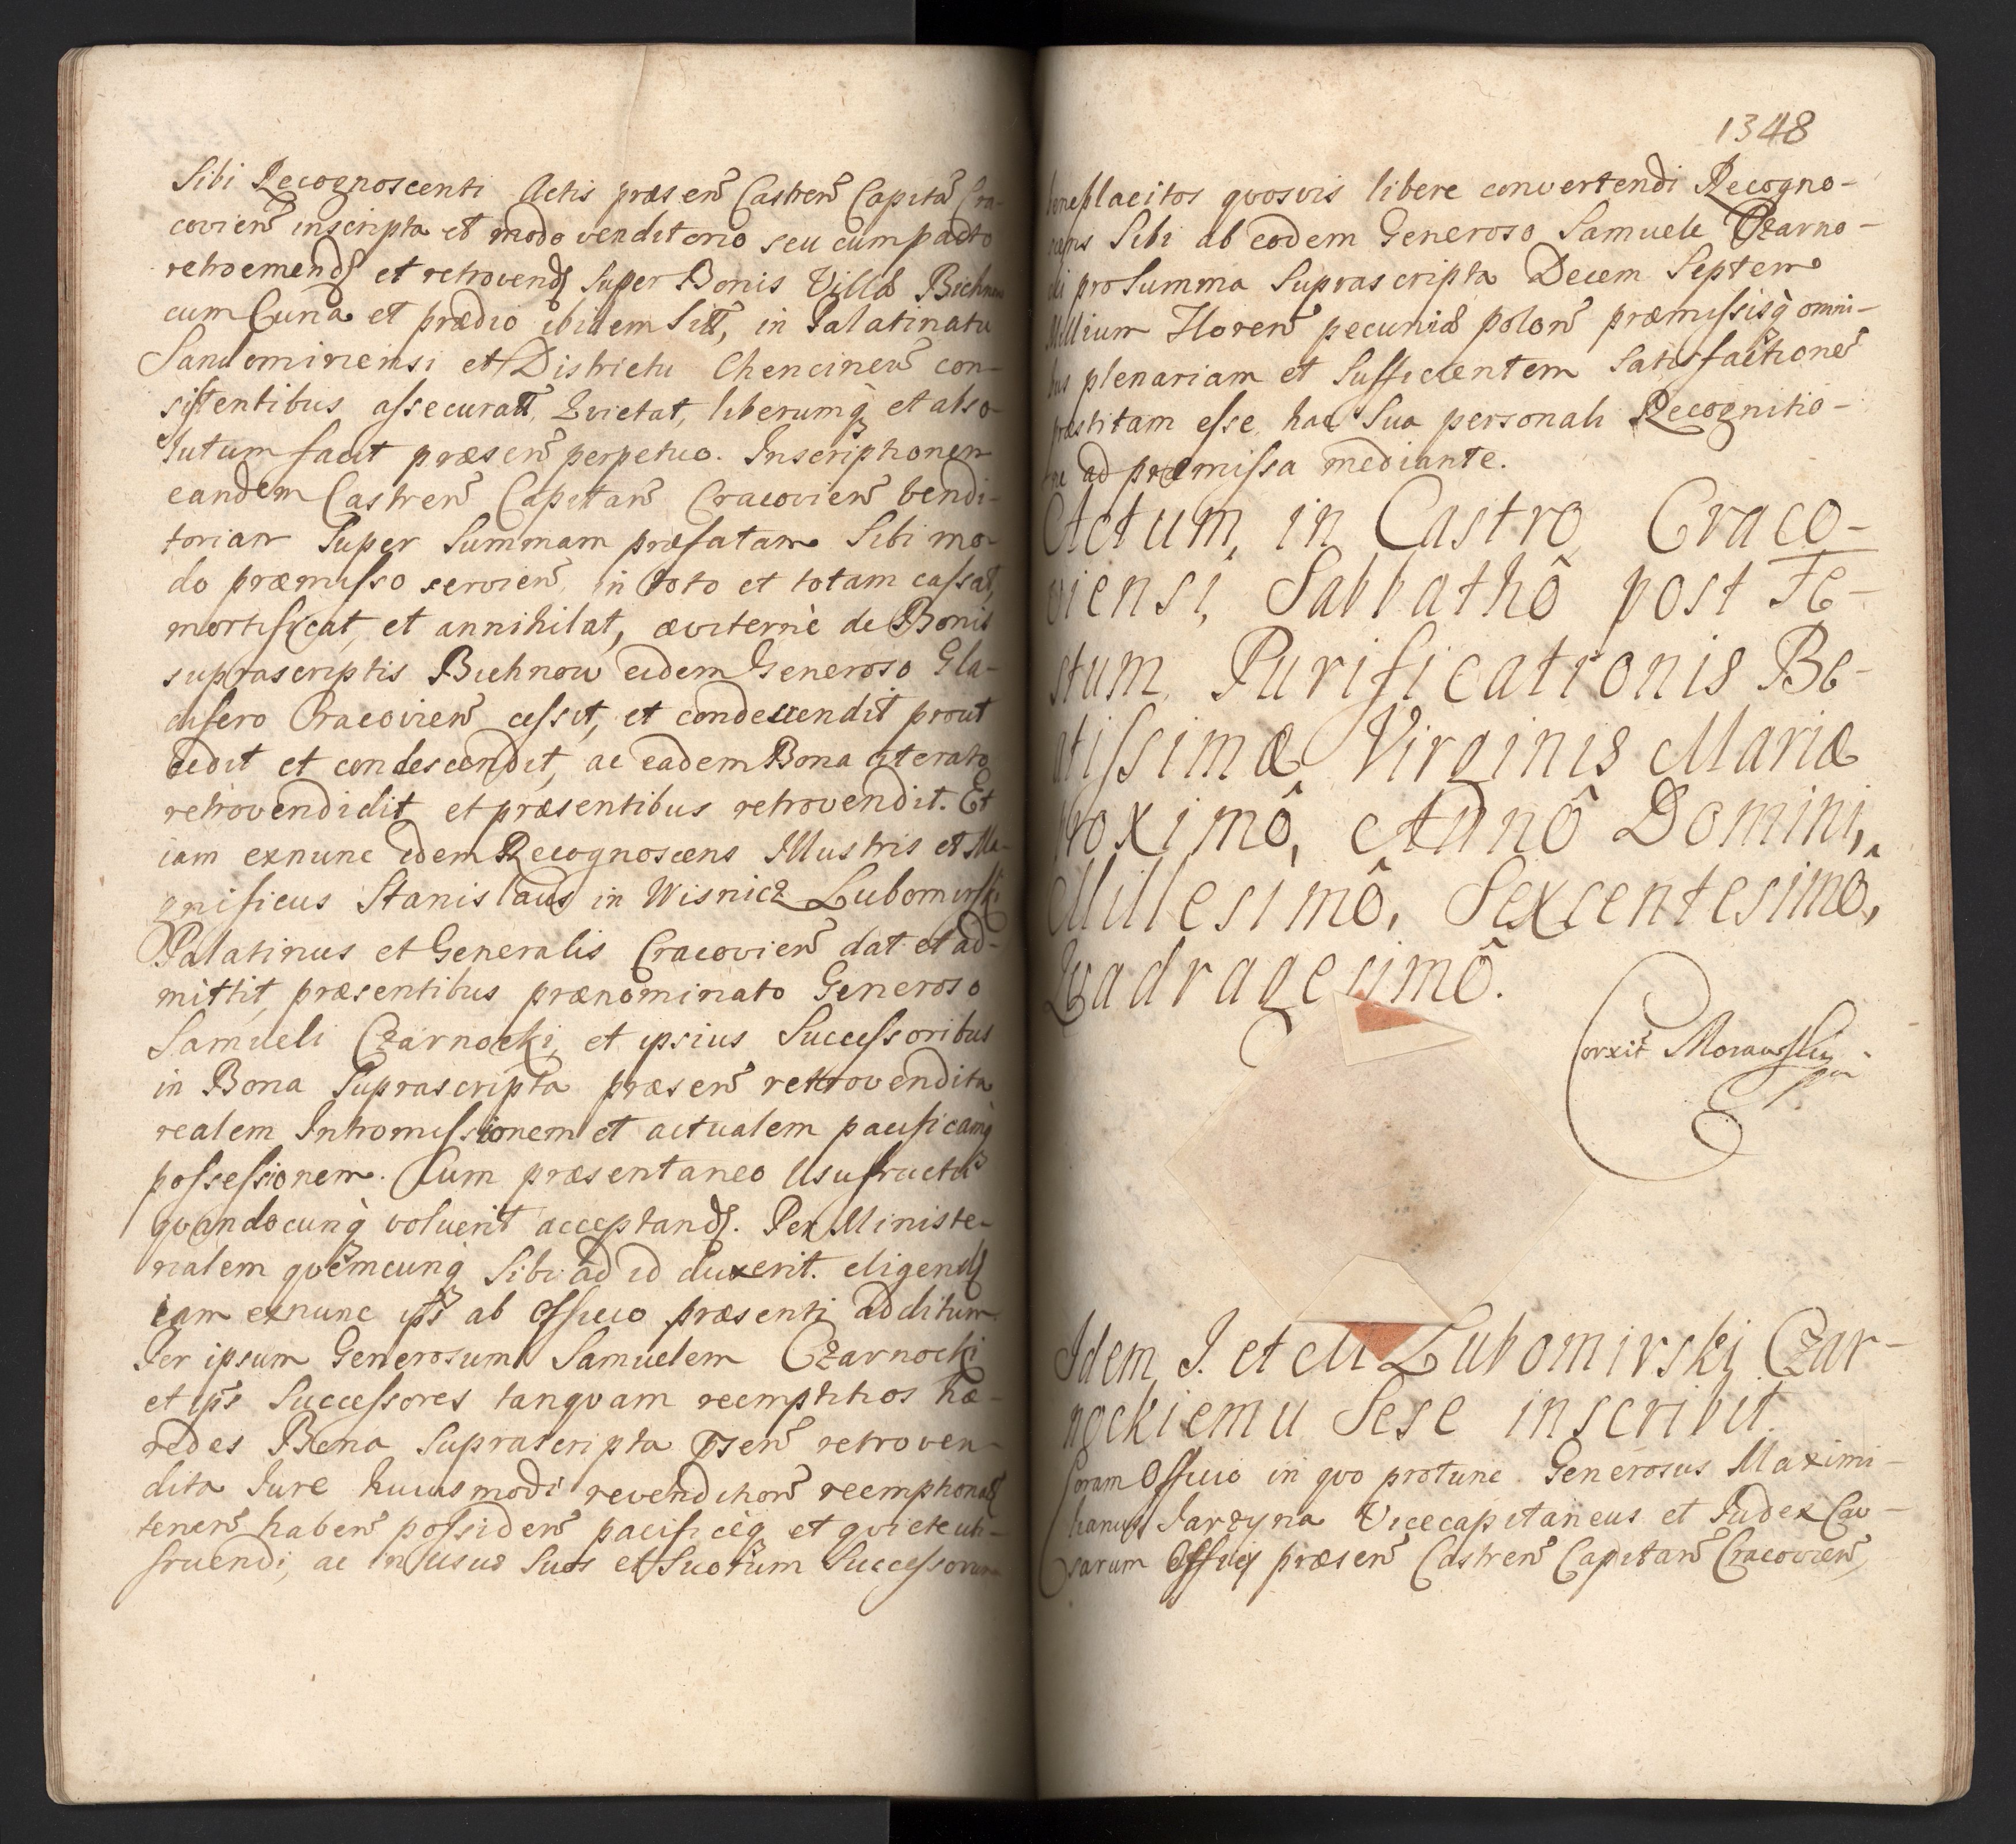 Sibi Recognoscenti Actis præsen̄ Castren̄ Capitān̄ Cra-
covien̄ inscripta et modo venditorio seu cum pacto
retroemend et retrovend super Bonis Villæ Biechnow
cum Curia et prædio ibidem sitt, in Palatinatu
Sandomiriensi et Districtu Chencinen̄ con-
sistentibus assecuratt, Qvietat, liberumq et abso-
lutum facit præsen̄ perpetuo. Inscriptionem
eandem Castren̄ Capitan̄ Cracovien̄ vendi-
toriam super Summam præfatam Sibi mo-
do præmisso servien̄ in toto et totam cassat,
mortificat, et annihilat, æviternè de Bonis
suprascriptis Biechnow eidem Generoso Gla-
difero Cracovien̄ cessit, et condescendit prout
cedit et condescendit, ac eadem Bona iterato
retrovendidit et præsentibus retrovendit. Et
iam exnunc idem Recognoscens Illustris et Ma-
gnificus Stanislaus in Wisnicz Lubomirski
Palatinus et Generalis Cracovien̄ dat et ad-
mittit, præsentibus prænominato Generoso
Samueli Czarnocki, et ipsius Successoribus
in Bona Suprascripta præsen̄ retrovendita
realem Intromissionem et actualem pacificamq
possessionem. Cum præsentaneo Usufructu
qvandocunq voluerit acceptand. Per Ministe-
rialem qvemcunq Sibi ad id duxerit eligend
iam exnunc ips̄ ab Officio præsenti additum
Per ipsum Generosum Samuelem Czarnocki
et ips̄ Successores tanqvam reemptitios hæ-
redes Bona Suprascripta pn̄sen̄ retroven-
dita Iure huiusmodi revenditión̄ reemptional
tenen̄ haben̄ possiden̄ pacificeq et qviete uti-
fruendi, ac in usus Suos et Suorum Successorum
1348
beneplacitos qvosvis libere convertendi Recogno-
scens Sibi ab eodem Generoso Samuele Czarno-
cki pro Summa Suprascripta Decem Septem
Millium Floren̄ pecuniæ polon̄ præmissisq omni-
bus plenariam et Sufficientem Satisfactionē
præstitam esse hac Sua personali Recognitio-
ne ad præmissa mediante.
Actum in Castro Craco-
viensi, Sabbathô post Fe-
stum Purificationis Be-
atissimæ Virginis Mariæ
proximô, Annô Domini,
Millesimô, Sexcentesimô,
Qvadragesimô.
Corxit Morawski
Idem J. et M Lubomirski Czar-
nockiemu Sese inscribit.
Coram Officio in qvo protunc Generosus Maximi-
lianus Jarzyna Vicecapitaneus et Judex Cau-
sarum Officij præsen̄ Castren̄ Capitan̄ Cracovien̄,